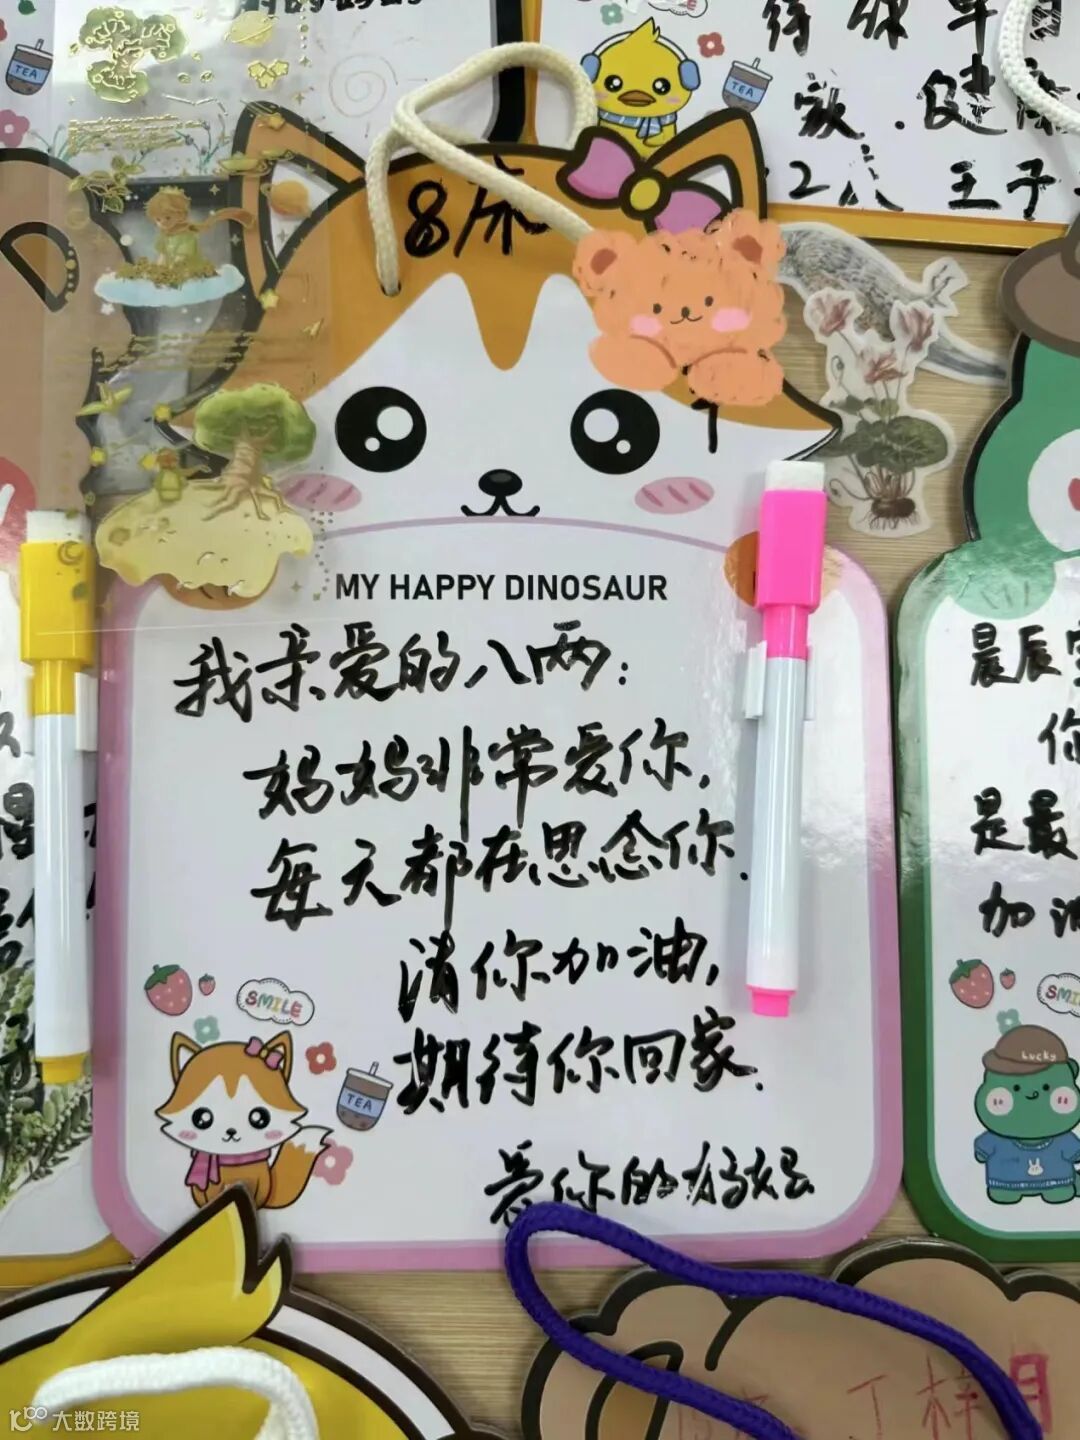 SMILE
TEA
TEA
待你早日
家.健康
12床 王子
8床
MY HAPPY DINOSAUR
我亲爱的八两:
妈妈非常爱你,
每天都在思念你.
请你加油,
期待你回家.
爱你的妈妈
SMILE
TEA
晨辰宝
你
是最
加油
SMILE
Lucky
丁梓月
大数跨境